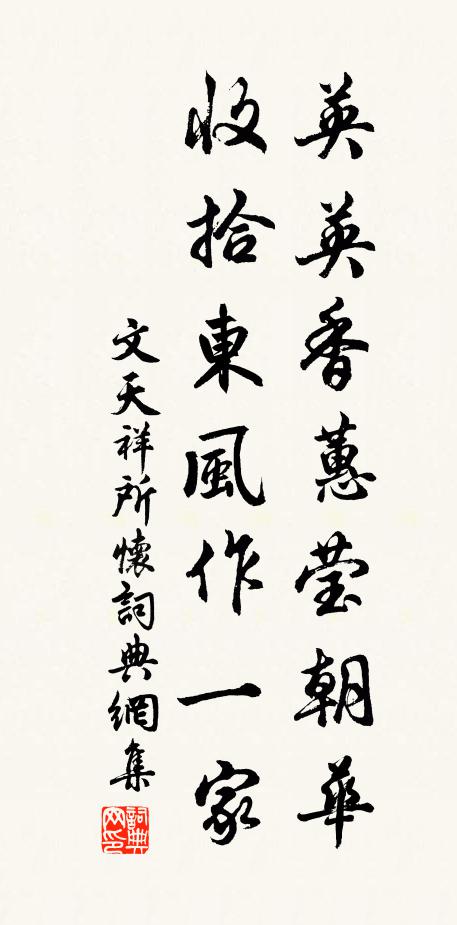 英英香蕙莹朝華
收拾東風作一家
文天祥所懷詞典網集
詞典
网印